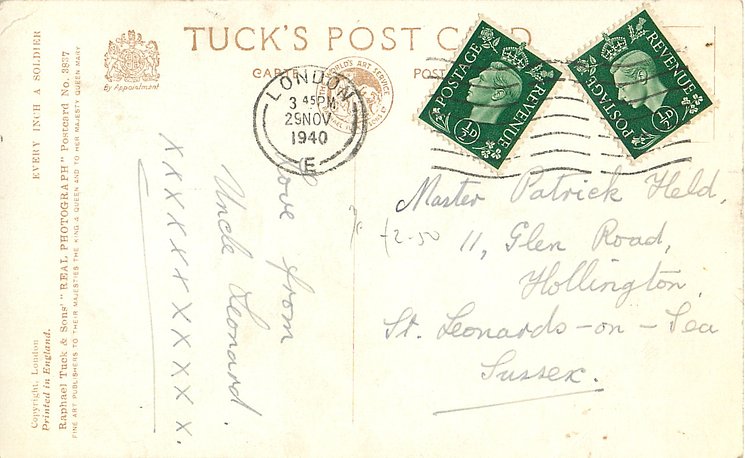 TUCK'S POST CARD
CARTE POST
By Appointment
LONDON
3 45PM
29 NOV
1940
E
POSTAGE REVENUE
½D
POSTAGE REVENUE
½D
EVERY INCH A SOLDIER
Raphael Tuck & Sons' "REAL PHOTOGRAPH" Postcard No. 3837
FINE ART PUBLISHERS TO THEIR MAJESTIES THE KING & QUEEN AND TO HER MAJESTY QUEEN MARY
Copyright, London
Printed in England.
Love from
Uncle Leonard.
XXXXXXXXXX.
Master Patrick Held,
11, Glen Road,
Hollington,
St. Leonards-on-Sea
Sussex.
2-50